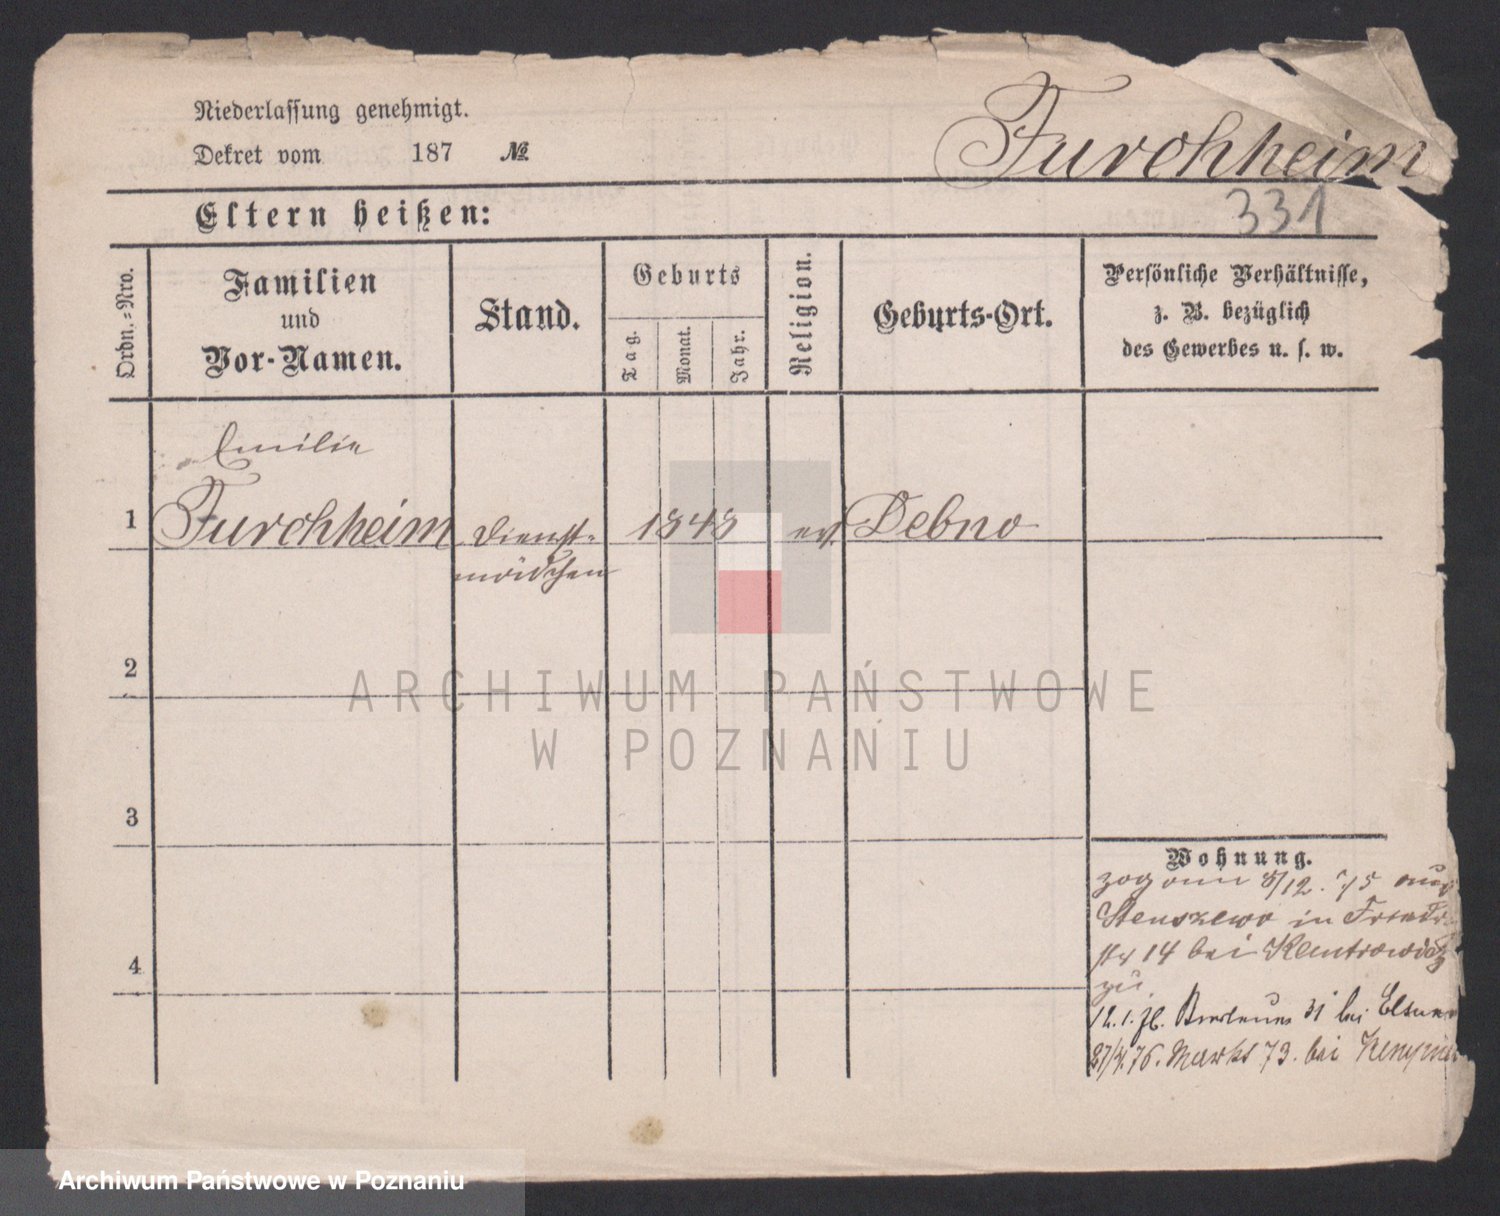 Niederlassung genehmigt.
Dekret vom 187 №
Furchheim
331
Eltern heißen:
Ordn.=Nro.
Familien
und
Vor-Namen.
Stand.
Geburts
Tag.
Monat.
Jahr.
Religion.
Geburts-Ort.
Persönliche Verhältnisse,
z. B. bezüglich
des Gewerbes u. s. w.
Emilie
1 Furchheim Dienst- 1848 ev. Debno
mädchen
2
ARCHIWUM PAŃSTWOWE
W POZNANIU
3
4
Wohnung.
zog am 8/12. 75 aus
Stenszewo in
str 14 bei
zu.
12.1.76. 31 bei
27/4.76. Markt 73. bei
Archiwum Państwowe w Poznaniu